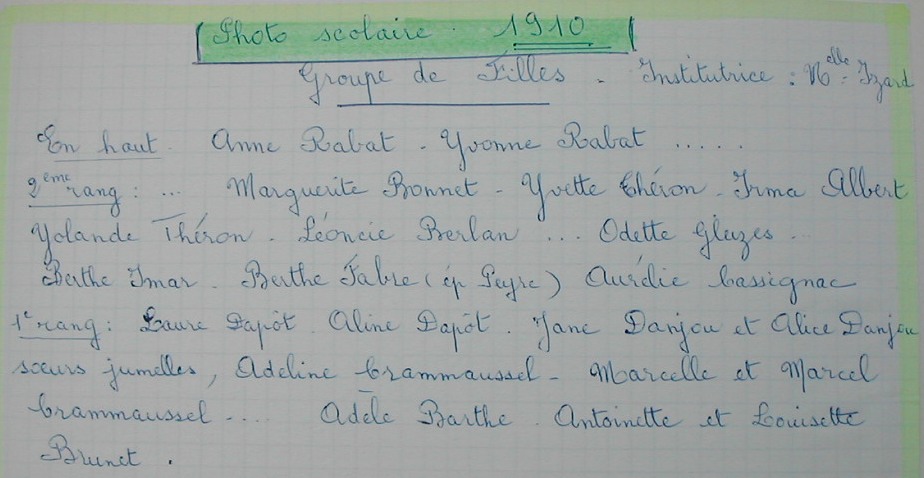 Photo scolaire. 1910
Groupe de Filles - Institutrice : Melle Izard
En haut. Anne Rabat - Yvonne Rabat .....
2ème rang : ... Marguerite Bonnet - Yvette Théron - Irma Albert
Yolande Théron - Léoncie Berlan ... Odette Gleizes ...
Berthe Imar - Berthe Fabre (ép Peyre) Aurélie Cassignac
1e rang : Laure Dapôt. Aline Dapôt. Jane Danjou et Alice Danjou
sœurs jumelles, Adeline Crammaussel - Marcelle et Marcel
Crammaussel .... Adèle Barthe. Antoinette et Louisette
Brunet.